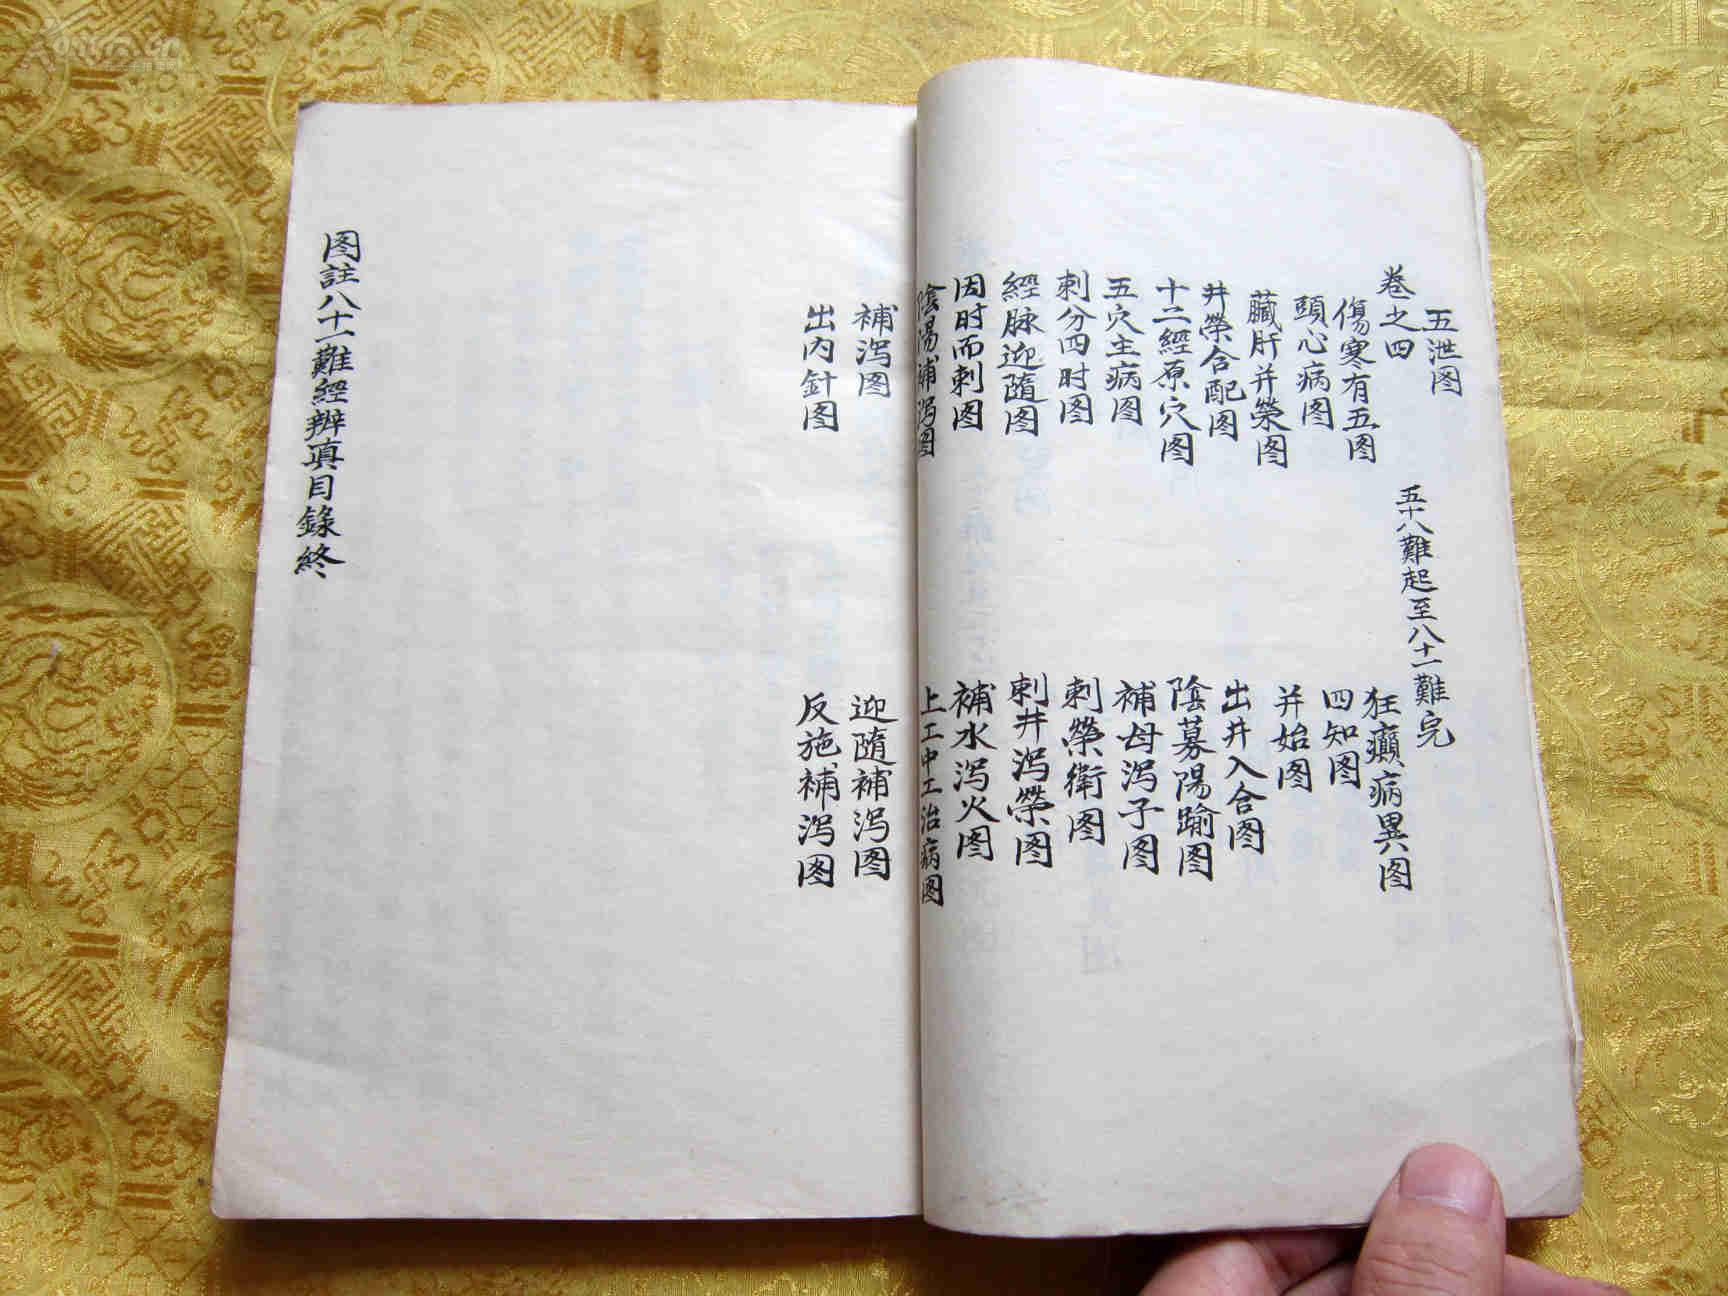 五泄图
卷之四
五十八難起至八十一難完
傷寒有五图
狂癲病異图
頭心病图
四知图
臟肝并榮图
并始图
井榮合配图
出井入合图
十二經原穴图
陰募陽踰图
五穴主病图
補母泻子图
刺分四时图
刺榮衛图
經脉迎隨图
刺井泻榮图
因时而刺图
補水泻火图
陰陽補泻图
上工中工治病图
補泻图
迎隨補泻图
出内針图
反施補泻图
图註八十一難經辨真目錄終